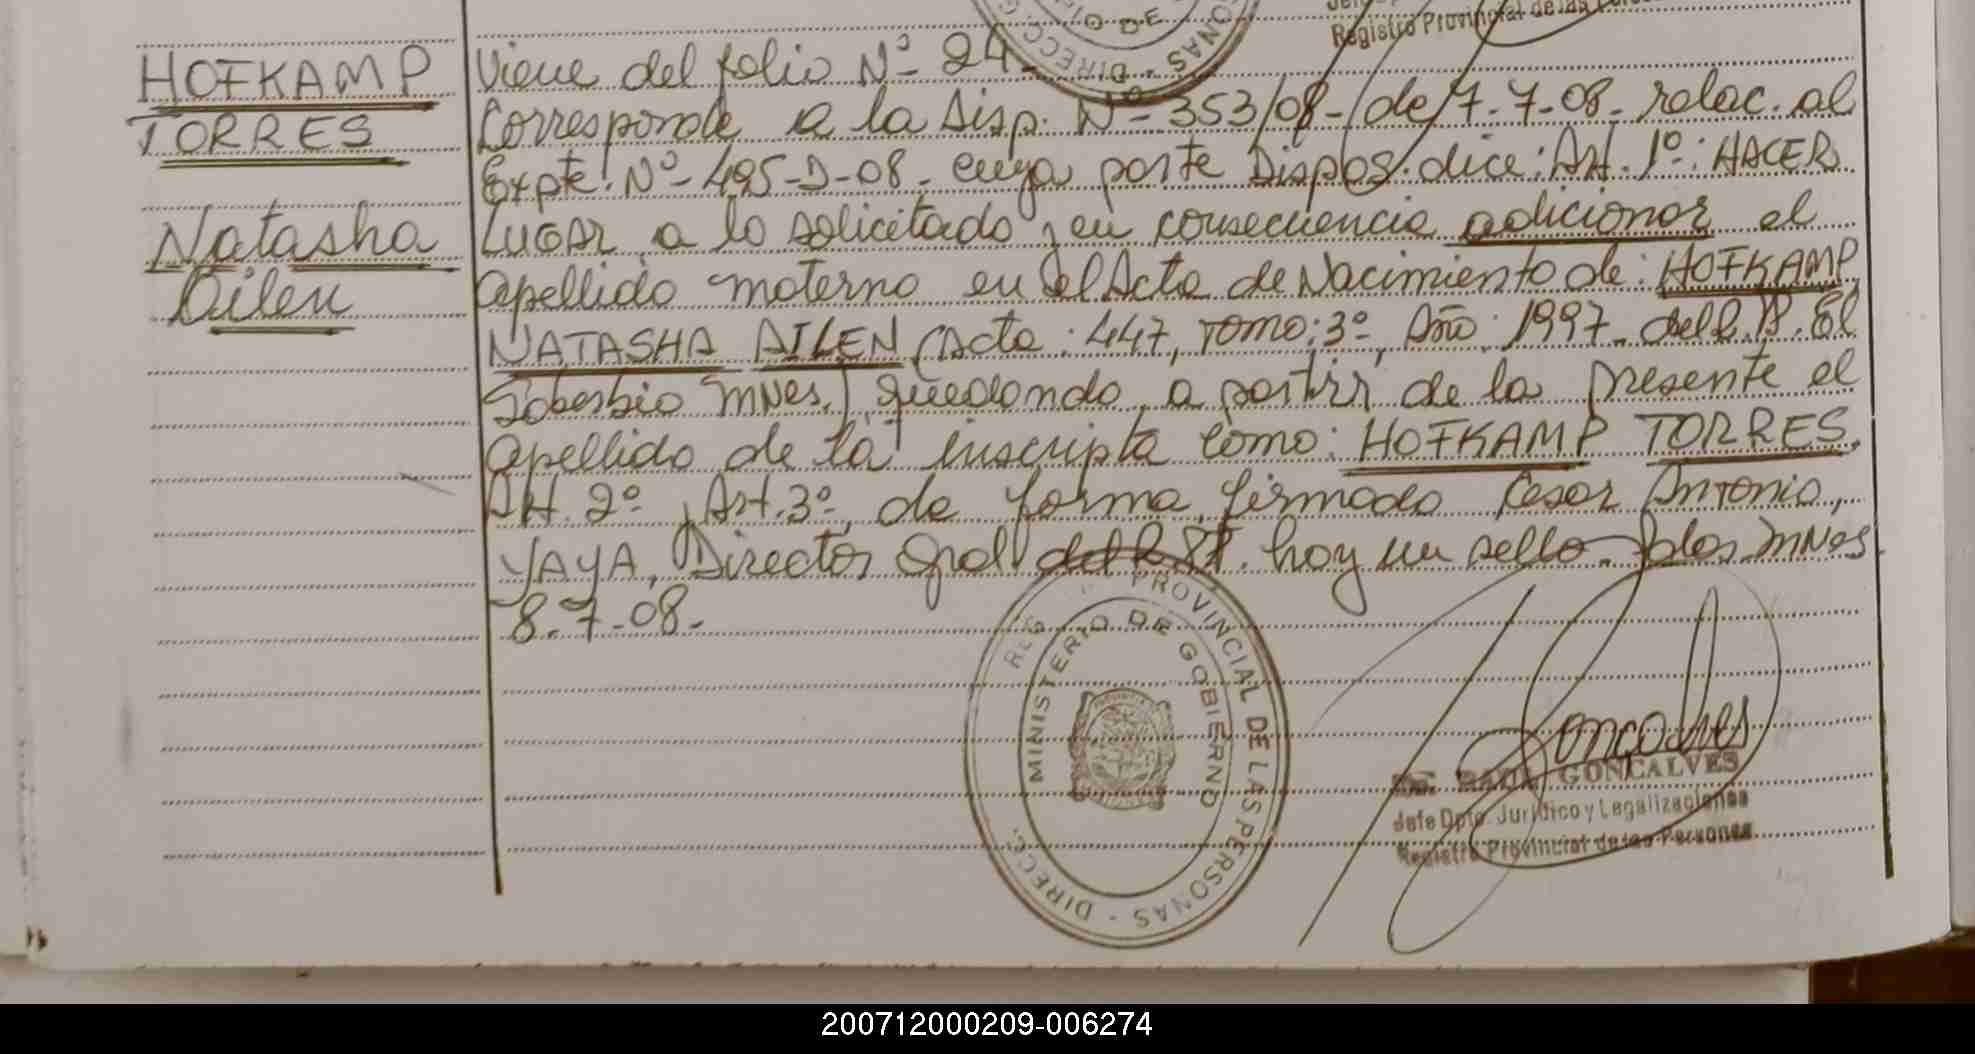 Registro Provincial de las
HOFKAMP
TORRES
Natasha
Ailen
Viene del folio Nº 24.
Corresponde a la Disp. Nº 353/08 - de 7-7-08 - relac. al
Expte. Nº 495-D-08 - cuya parte Dispos. dice: Art. 1º: HACER
LUGAR a lo solicitado, en consecuencia adicionar el
apellido materno en el Acta de Nacimiento de: HOFKAMP
NATASHA AILEN (Acta: 447, Tomo: 3º, Año: 1997 - del R.P. El
Soberbio Mnes.) quedando a partir de la presente el
apellido de la inscripta como: HOFKAMP TORRES.
Art. 2º, Art. 3º, de forma, firmado Cesar Antonio,
YAYA, Director Gral del R.P. hoy un sello - Pdas. Mnes
8-7-08.-
PROVINCIAL DE LAS PERSONAS - DIRECC.
MINISTERIO DE GOBIERNO
Goncalves
RAUL GONCALVES
Jefe Dpto. Jurídico y Legalizaciones
Registro Provincial de las Personas
200712000209-006274